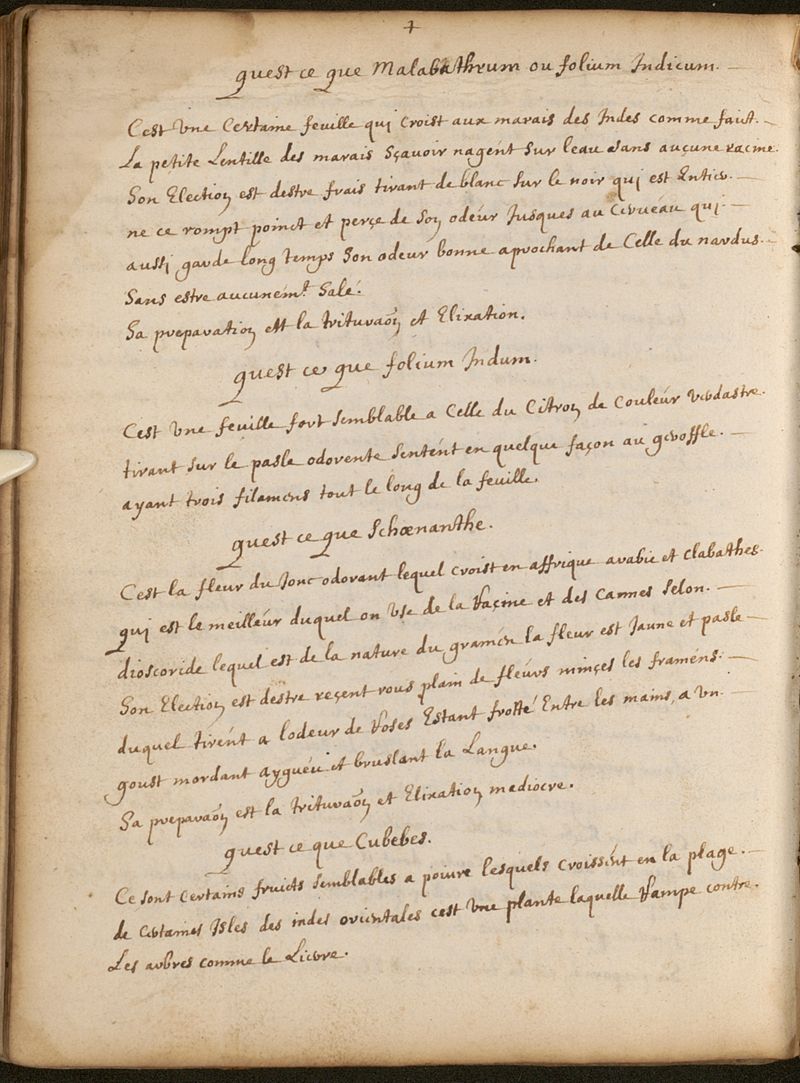 4
quest ce que Malabathrum ou folium Indicum.
Cest Une Certaine feuille qui Croist aux marais des Indes comme faict.
La petite Lentille des marais Sçavoir nagent Sur leau Sans auçune racine.
Son Election est destre frais tirant de blanc Sur le noir qui est Entier.
ne ce rompt poinct et perçe de Son odeur Jusques au Cerueau qui
aussi garde long temps Son odeur bonne aprochant de Celle du nardus.
Sans estre aucunemt Salé.
Sa preparation est la trituraõn et Elixation.
quest ce que folium Indum.
Cest Une feuille fort Semblable a Celle du Citron de Couleur Verdastre.
tirant Sur le pasle odorente Sentent en quelque façon au geroffle.
ayant trois filamens tout le long de la feuille.
quest ce que Schœnanthe.
Cest la fleur du Jonc odorant lequel croist en affrique arabie et
qui est le meilleur duquel on Use de la Raçine et des Cannes Selon.
dioscoride lequel est de la nature du gramen la fleur est Jaune et pasle
Son Election est destre reçent rous plain de fleurs minçes les framens.
duquel tirent a lodeur de Roses Estant frotté Entre les mains, a Vn
goust mordant aygueu et bruslant la Langue.
Sa preparaõn est la trituraõn et Elixation mediocre.
quest ce que Cubebes.
Ce sont Certains fruicts Semblables a poiure lesquels Croissent en la plage.
de Certaines Isles des indes orientales cest Une plante laquelle Rampe contre.
Les arbres comme le Lierre.